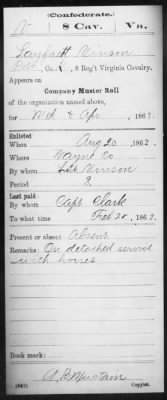 (Confederate.)
V 8 Cav. Va.
Layfaett Vinson
, Co. K, 8 Reg't Virginia Cavalry.
Appears on
Company Muster Roll
of the organization named above,
for Mch & Apr, 1863.
Enlisted
When Aug 20, 1862.
Where Wayne Co
By whom Vinson
Period 3
Last paid:
By whom Capt. Clark
To what time Feb 28, 1863.
Present or absent Absent
Remarks: On detached service
with horses
Book mark:
(642) Copyist.